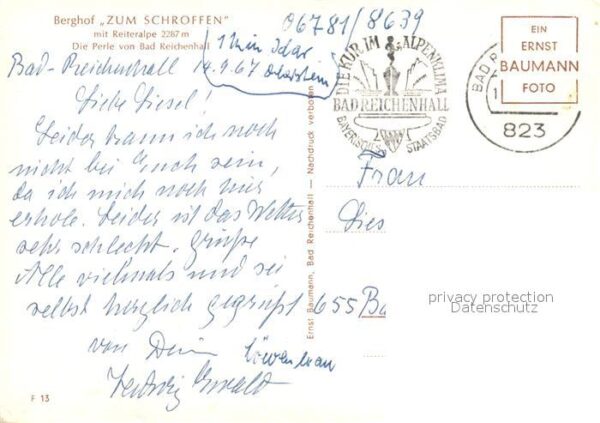 Berghof „ZUM SCHROFFEN"
mit Reiteralpe 2287 m
Die Perle von Bad Reichenhall
06781/8639
Bad-Reichenhall 14.9.67
Liebe Liesel!
Leider kann ich noch
nicht bei Euch sein,
da ich mich noch hier
erhole. Leider ist das Wetter
sehr schlecht. Grüße
Alle vielmals und sei
selbst herzlich gegrüßt
von Deiner Löwenfrau
Hedwig Ewald
F 13
Ernst Baumann, Bad Reichenhall — Nachdruck verboten
DIE KUR IM ALPENKLIMA
BAD REICHENHALL
BAYERISCHES STAATSBAD
EIN
ERNST
BAUMANN
FOTO
BAD R
823
Frau
Lies
655 Ba
privacy protection
Datenschutz